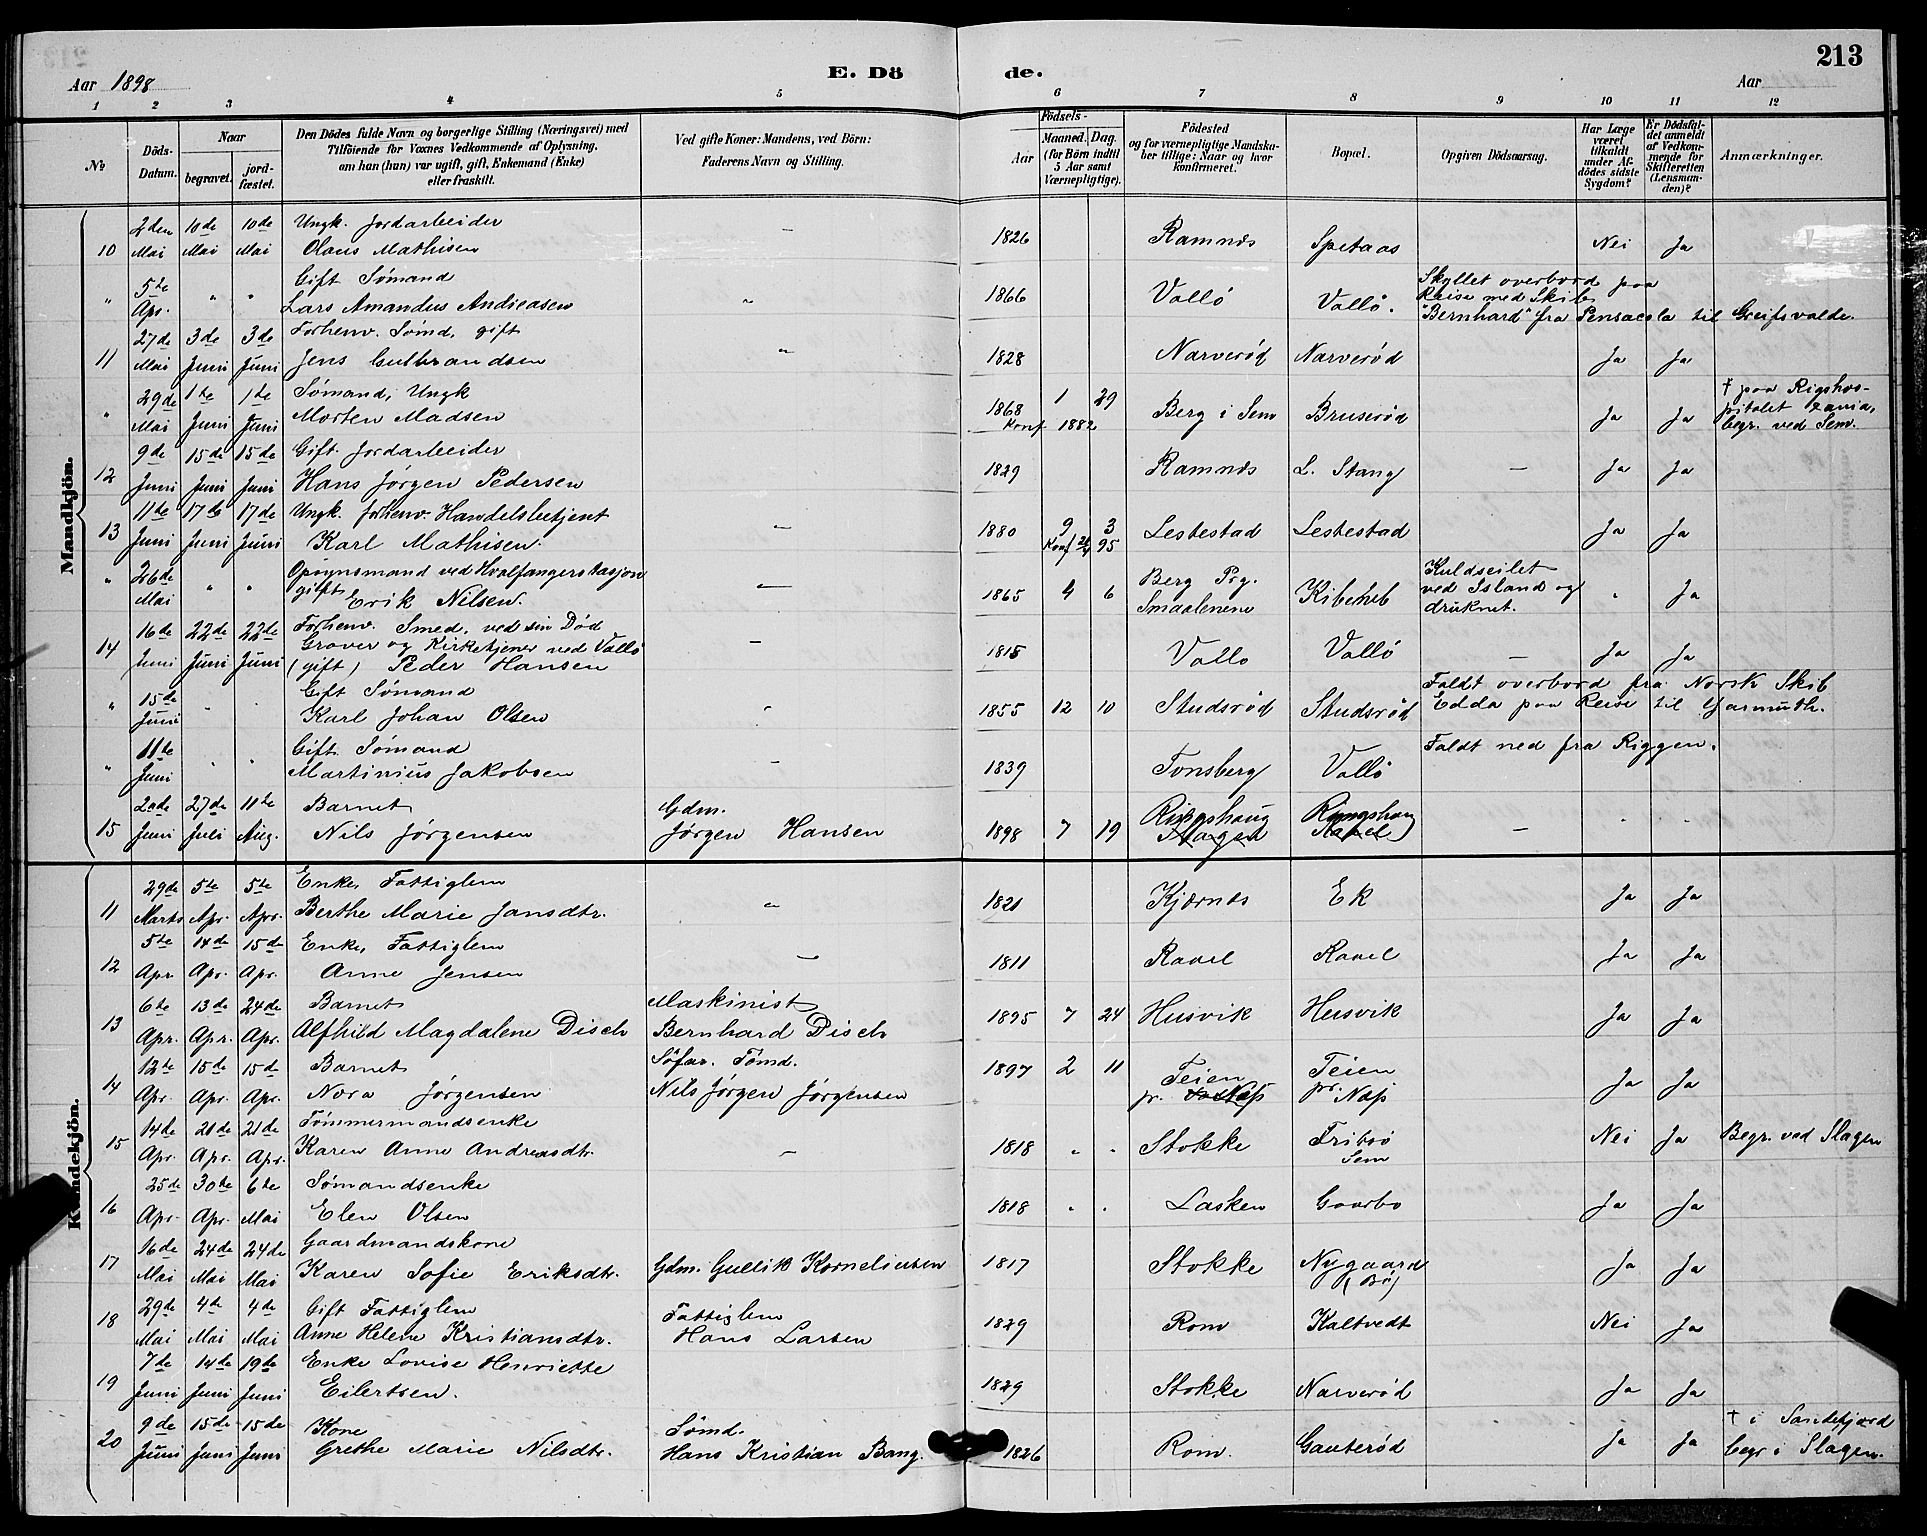 213
Aar 1898
E. Dö
de.
Aar
1 2 3 4 5 6 7 8 9 10 11 12
№
Döds-Datum.
Naar
begravet.
jord-fæstet.
Den Dödes fulde Navn og borgerlige Stilling (Næringsvei) med
Tilföiende for Voxnes Vedkommende af Oplysning,
om han (hun) var ugift, gift, Enkemand (Enke)
eller fraskilt.
Ved gifte Koner: Mandens, ved Börn:
Faderens Navn og Stilling.
Födsels-
Aar
Maaned. Dag.
(for Börn indtil
5 Aar samt
Værnepligtige).
Födested
og for værnepligtige Mandska-
ber tillige: Naar og hvor
konfirmeret.
Bopæl.
Opgiven Dödsaarsag.
Har Læge
været
tilkaldt
under Af-
dödes sidste
Sygdom?
Er Dödsfal-
det anmeldt
af Vedkom-
mende for
Skifteretten
(Lensman-
den)?
Anmærkninger.
Mandkjön.
2den 10de 10de Ungk. Jordarbeider
10 Mai Mai Mai Olaus Mathisen — 1826 Ramnes Spetaas Nei Ja
5te Gift Sømand
" Apr. " " Lars Amandus Andreasen " 1866 Vallö Vallö. Skyllet overbord paa
Reise med Skib
"Bernhard" fra Pensacola til Greifsvalde.
27de 3de 3de Forhenv. Sømd, gift
11 Mai Juni Juni Jens Gulbrandsen " 1828 Narverød Narverød Ja Ja
29de 1te 1te Sømand, Ungk
" Mai Juni Juni Morten Madsen 1868 1 29 Berg i Sem Bruserød Ja Ja
Konf 1882
† paa Rigshos-
pitalet
begr. ved Sem.
9de 15de 15de Gift. Jordarbeider
12 Juni Juni Juni Hans Jørgen Pedersen 1829 Ramnes L. Stang — Ja Ja
11te 17de 17de Ungk. forhenv. Handelsbetjent
13 Juni Juni Juni Karl Mathisen. — 1880 9 3 Lestestad Lestestad Ja Ja
Konf 95
26de Opsynsmand ved Hvalfangerstasjon
" Mai " " gift Erik Nilsen. — 1865 4 6 Berg Prg.
Smaalenene Kuldseilet
ved Island og
druknet. " Ja
16de 22de 22de Forhenv. Smed, ved sin Död
14 Graver og Kirketjener ved Vallö —
Juni Juni Juni (gift) Peder Hansen 1815 Vallo Vallö — Ja Ja
15de Gift Sømand
" Juni " " Karl Johan Olsen " 1855 12 10 Studsrød Studsrød Faldt overbord fra Norsk Skib
Edda paa Reise til Yarmuth.
11te Gift Sømand
" Juni " " Martinius Jakobsen — 1839 Tonsberg Vallö Faldt ned fra Riggen.
20de 27de 11te Barnet Gdm.
15 Juni Juli Aug. Nils Jørgensen Jørgen Hansen 1898 7 19 Ringshaug Ringshaug —
Slagen Ravel
Kvindekjön.
29de 5te 5te Enke, Fattiglem
11 Marts Apr. Apr. Berthe Marie Jansdtr. " 1821 Kjærnes Ek Ja Ja
5te 14de 15de Enke, Fattiglem
12 Apr Apr. Apr. Anne Jensen — 1811 Ravel Ravel Ja Ja
6te 13de 24de Barnet Maskinist
13 Apr. Apr. Apr. Alfhild Magdalene Disch Bernhard Disch 1895 7 24 Husvik Husvik Ja Ja
12te 15de 15de Barnet Söfar. Tømd.
14 Apr. Apr. Apr. Nora Jørgensen Nils Jørgen Jørgensen 1897 2 11 Teien Teien Ja Ja
pr. Næs pr. Næs
14de 21de 21de Tømmermandsenke
15 Apr. Apr. Apr. Karen Anne Andreasdtr. — 1818 " " Stokke Fribsö
Sem Nei Ja Begr. ved Slagen
25de 30te 6te Sømandsenke
16 Apr. Apr. Mai Elen Olsen 1818 " " Lasken Gaarbo Ja Ja
16de 24de 24de Gaardmandskone
17 Mai Mai Mai Karen Sofie Eriksdtr. Gdm. Gullik Korneliussen 1817 Stokke Nygaard
(Bö) Ja Ja
29de 4de 4de Gift Fattiglem Fattiglem
18 Mai Mai Mai Anne Helene Kristiansdtr. Hans Larsen 1829 Rom Kaltvedt Nei Ja
7de 14de 19de Enke Lovise Henriette
19 Juni Juni Juni Eilertsen. 1829 Stokke Narverød Ja Ja
9de 15de 15de Kone Sømd.
20 Juni Juni Juni Grethe Marie Nilsdtr. Hans Kristian Bang. 1826 Rom. Gauterød Ja Ja
† i Sandefjord
begr i Slagen.